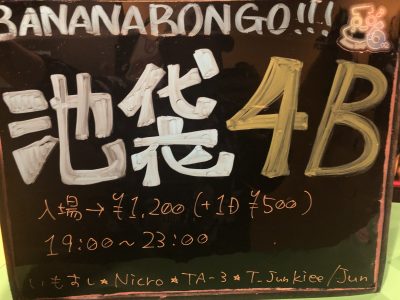 BANANABONGO!!!
池袋 4B
入場→¥1,200(+1D ¥500)
19:00~23:00
いもすし★Nicro★TA-3★T-Junkiee/Jun